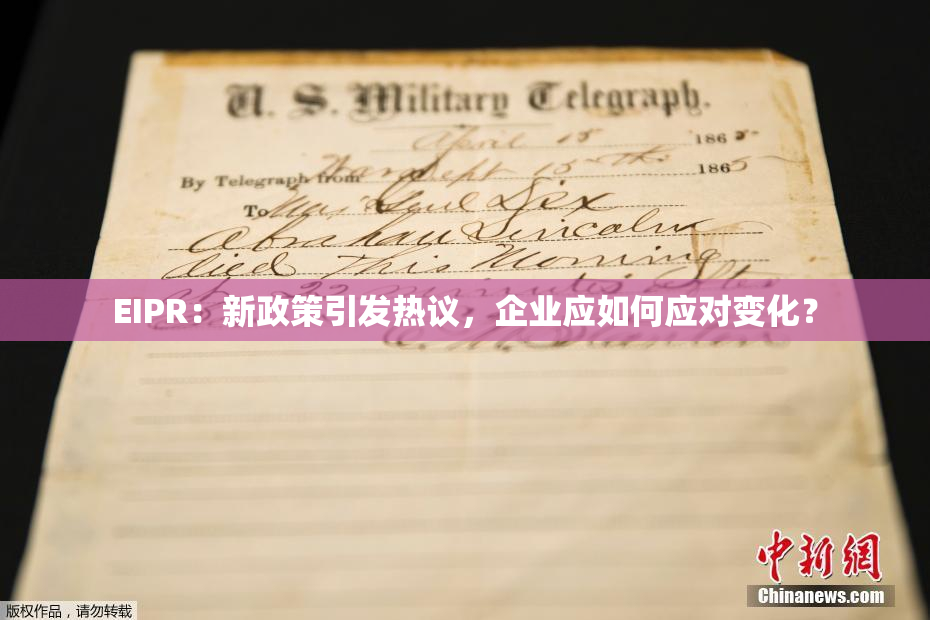 U. S. Military Telegraph.
April 15 1865
By Telegraph from War Dept 15th 1865
To Maj Genl Dix
Abraham Lincoln
died This Morning
at 22 minutes after
EIPR：新政策引发热议，企业应如何应对变化？
E. M. Stanton
中新网
Chinanews.com
版权作品，请勿转载